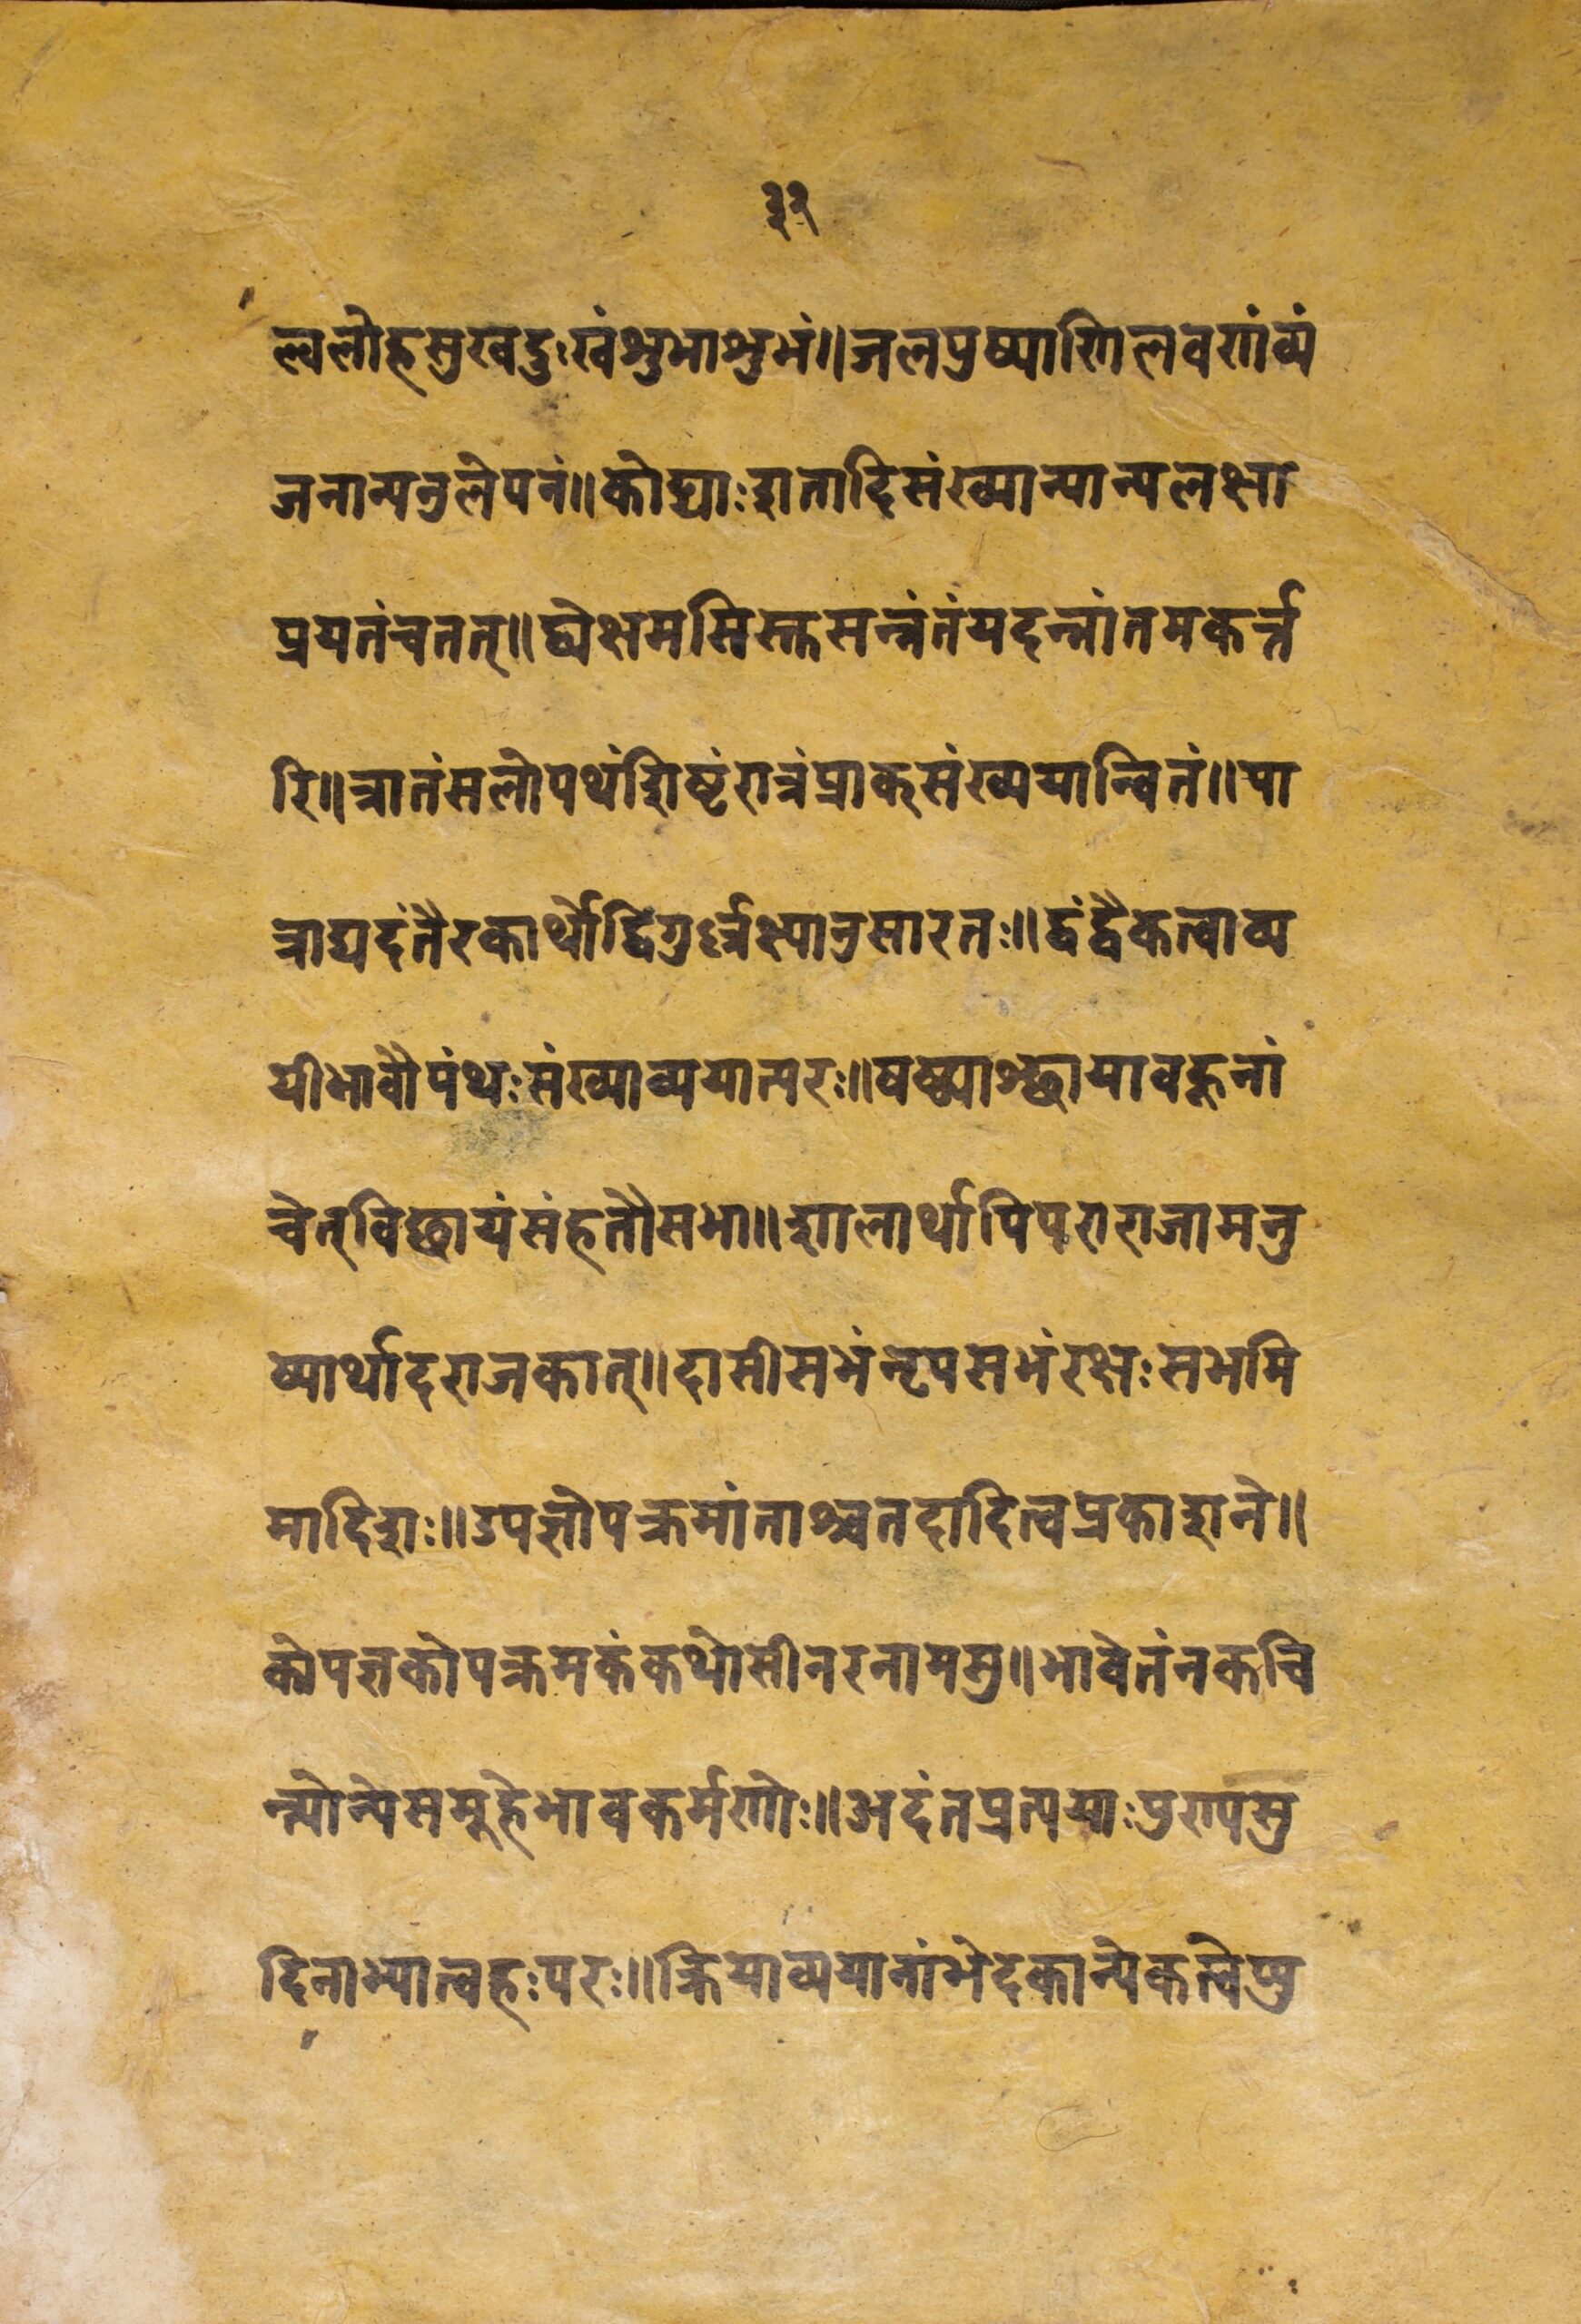 ३२
ल्वलोहसुखदुःखंशुभाशुभं॥जलपुष्पाणिलवणंव्यं
जनान्यनुलेपनं॥कोट्याःशतादिसंख्यान्यान्यलक्षा
प्रयतंचतत्॥द्व्येक्षमसिस्क्तसन्त्रंतंयदन्त्रांतमकर्त्त
रि॥त्रातंसलोपथंशिष्टंरात्रंप्राक्संख्ययान्वितं॥पा
त्राद्यदंतैरकार्थोद्विगुर्ल्लक्ष्यानुसारतः॥द्वंद्वैकत्वाव्य
यीभावौपंथःसंख्याव्ययात्परः॥षष्ठ्याश्छायावहूनां
चेत्विछायंसंहतौसभा॥शालार्थापिपराराजामनु
ष्यार्थादराजकात्॥दासीसभंनृपसभंरक्षःसभमि
मादिशः॥उपज्ञोपक्रमांताश्चतदादित्वप्रकाशने॥
कोपज्ञकोपक्रमकंकथोसीनरनामसु॥भावेतंनकचि
न्त्योन्येसमूहेभावकर्मणोः॥अदंतप्रत्ययाःपुण्यसु
दिनाभ्यात्वहःपरः॥क्रियाव्ययानांभेदकान्येकत्वेप्यु